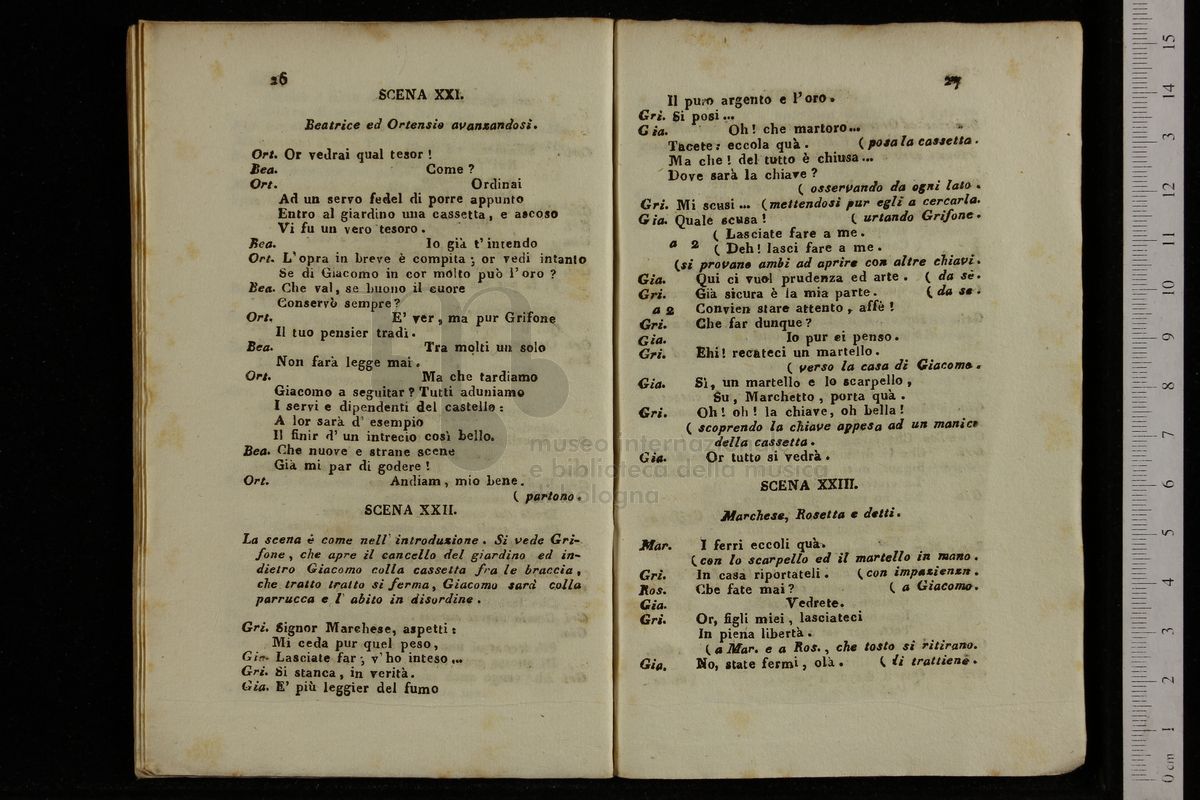 26
SCENA XXI.
Beatrice ed Ortensio avanzandosi.
Ort. Or vedrai qual tesor !
Bea. Come ?
Ort. Ordinai
Ad un servo fedel di porre appunto
Entro al giardino una cassetta, e ascoso
Vi fu un vero tesoro.
Bea. Io già t'intendo
Ort. L'opra in breve è compita ; or vedi intanto
Se di Giacomo in cor molto può l'oro ?
Bea. Che val, se buono il cuore
Conservò sempre?
Ort. E' ver, ma pur Grifone
Il tuo pensier tradì.
Bea. Tra molti un solo
Non farà legge mai.
Ort. Ma che tardiamo
Giacomo a seguitar ? Tutti aduniamo
I servi e dipendenti del castello :
A lor sarà d' esempio
Il finir d' un intrecio così bello.
Bea. Che nuove e strane scene
Già mi par di godere !
Ort. Andiam, mio bene.
( partono.
SCENA XXII.
La scena è come nell' introduzione. Si vede Gri-
fone, che apre il cancello del giardino ed in-
dietro Giacomo colla cassetta fra le braccia,
che tratto tratto si ferma, Giacomo sarà colla
parrucca e l' abito in disordine.
Gri. Signor Marchese, aspetti :
Mi ceda pur quel peso,
Gia. Lasciate far ; v'ho inteso ...
Gri. Si stanca, in verità.
Gia. E' più leggier del fumo
27
Il puro argento e l'oro.
Gri. Si posi ...
Gia. Oh! che martoro...
Tacete: eccola quà. ( posa la cassetta.
Ma che ! del tutto è chiusa ...
Dove sarà la chiave ?
( osservando da ogni lato.
Gri. Mi scusi ... (mettendosi pur egli a cercarla.
Gia. Quale scusa ! ( urtando Grifone.
a 2 ( Lasciate fare a me.
( Deh! lasci fare a me.
(si provano ambi ad aprire con altre chiavi.
Gia. Qui ci vuol prudenza ed arte. ( da sè.
Gri. Già sicura è la mia parte. ( da se.
a 2 Convien stare attento, affè !
Gri. Che far dunque ?
Gia. Io pur ci penso.
Gri. Ehi! recateci un martello.
( verso la casa di Giacomo.
Gia. Sì, un martello e lo scarpello,
Su, Marchetto, porta quà.
Gri. Oh! oh! la chiave, oh bella!
( scoprendo la chiave appesa ad un manico
della cassetta.
Gia. Or tutto si vedrà.
SCENA XXIII.
Marchese, Rosetta e detti.
Mar. I ferri eccoli quà.
(con lo scarpello ed il martello in mano.
Gri. In casa riportateli. (con impazienza.
Ros. Che fate mai ? ( a Giacomo.
Gia. Vedrete.
Gri. Or, figli miei, lasciateci
In piena libertà.
(a Mar. e a Ros., che tosto si ritirano.
Gia. No, state fermi, olà. ( li trattiene.
museo internaz
e biblioteca della musica
di bologna
0 cm 1 2 3 4 5 6 7 8 9 10 11 12 13 14 15